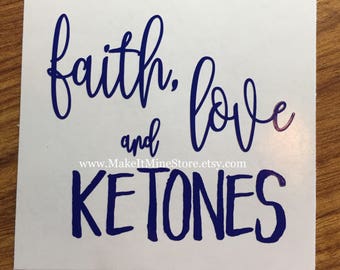 faith,
love
and
www.MakeItMineStore.etsy.com
KETONES